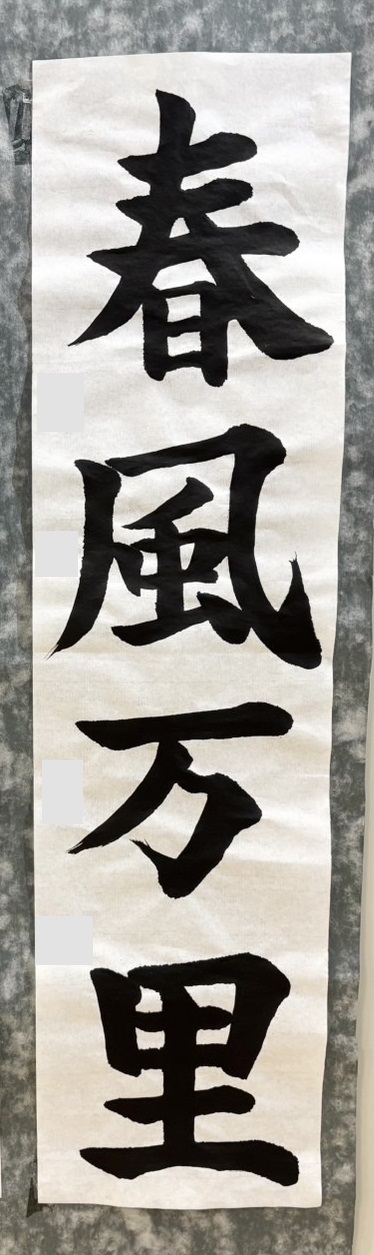 春風万里